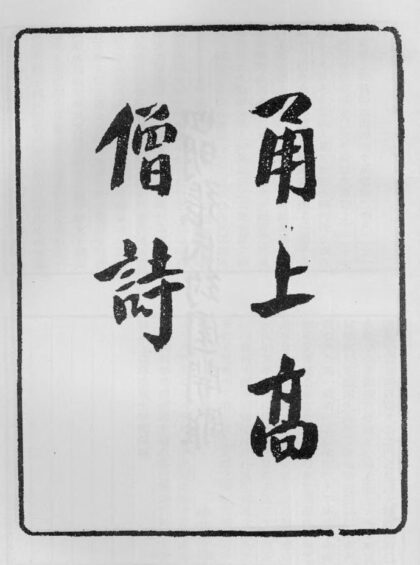 甬上高
僧詩